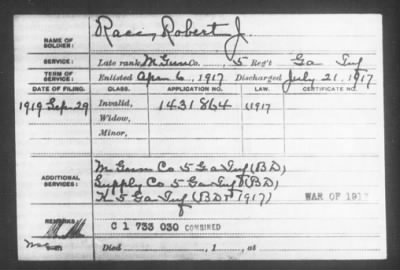 NAME OF SOLDIER: Race, Robert J.
SERVICE: Late rank M Gun Co. 5 Reg't Ga Inf
TERM OF SERVICE: Enlisted Apr 6, 1917 Discharged July 21, 1917
DATE OF FILING. CLASS. APPLICATION NO. LAW. CERTIFICATE NO.
1919 Sep 29 Invalid, 1431864 U1917
Widow,
Minor,
ADDITIONAL SERVICES: M Gun Co 5 Ga Inf (BD)
Supply Co 5 Ga Inf (BD)
5 Ga Inf (BD 1917) WAR OF 1917
REMARKS
C 1 733 030 COMBINED
Died , 1 , at